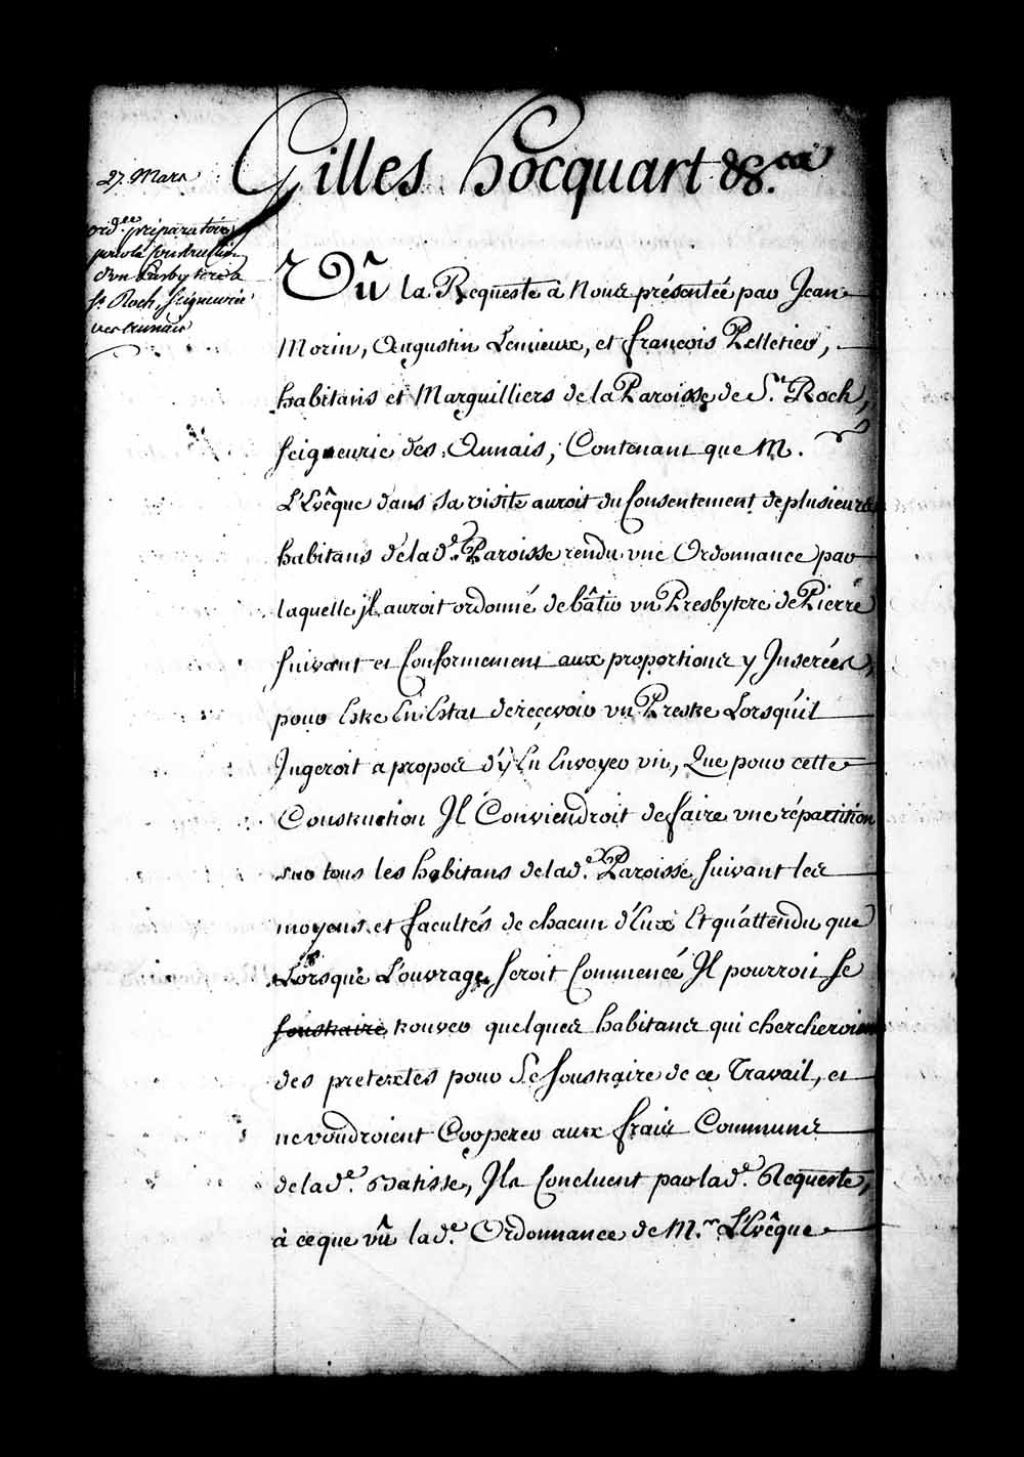 Gilles hocquart &c.ca
27. Mars
ord.ce préparatoire
pour la construction
d'un Presbytere à
St. Roch, Seigneurie
des Aunais
Vû la Requeste à Nous présentée par Jean
Morin, Augustin Lemieux, et francois Pelletier,
habitans et Marguilliers de la Paroisse de St. Roch,
Seigneurie des Aunais, Contenant que M.r
L'Evêque dans sa visite auroit du Consentement de plusieurs
habitans de lad.e Paroisse rendu une Ordonnance par
laquelle jl auroit ordonné de bâtir un Presbytere de Pierre
Suivant et Conformement aux proportions y Inserées,
pour Estre En Estat de reçevoir un Prestre Lorsqu'il
Jugeroit a propos d'y En Envoyer un, Que pour cette
Construction Il Conviendroit de faire une répartition
sur tous les habitans de lad.e Paroisse, Suivant les
moyens et facultés de chacun d'Eux Et qu'attendu que
Lorsque L'ouvrage Seroit Commencé Il pourroit Se
soustraire trouver quelques habitans qui chercheroient
des pretextes pour Se Soustraire de ce Travail, et
ne voudroient Coopérer aux frais Communs
de lad.e Batisse, Ils Concluent par lad.e Requeste,
à ce que vû lad.e Ordonnance de M.r L'Evêque